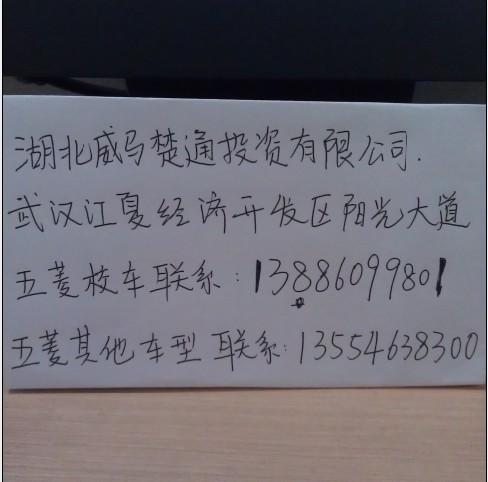 湖北威马楚通投资有限公司.
武汉江夏经济开发区阳光大道
五菱校车联系:13886099801
五菱其他车型 联系:13554638300